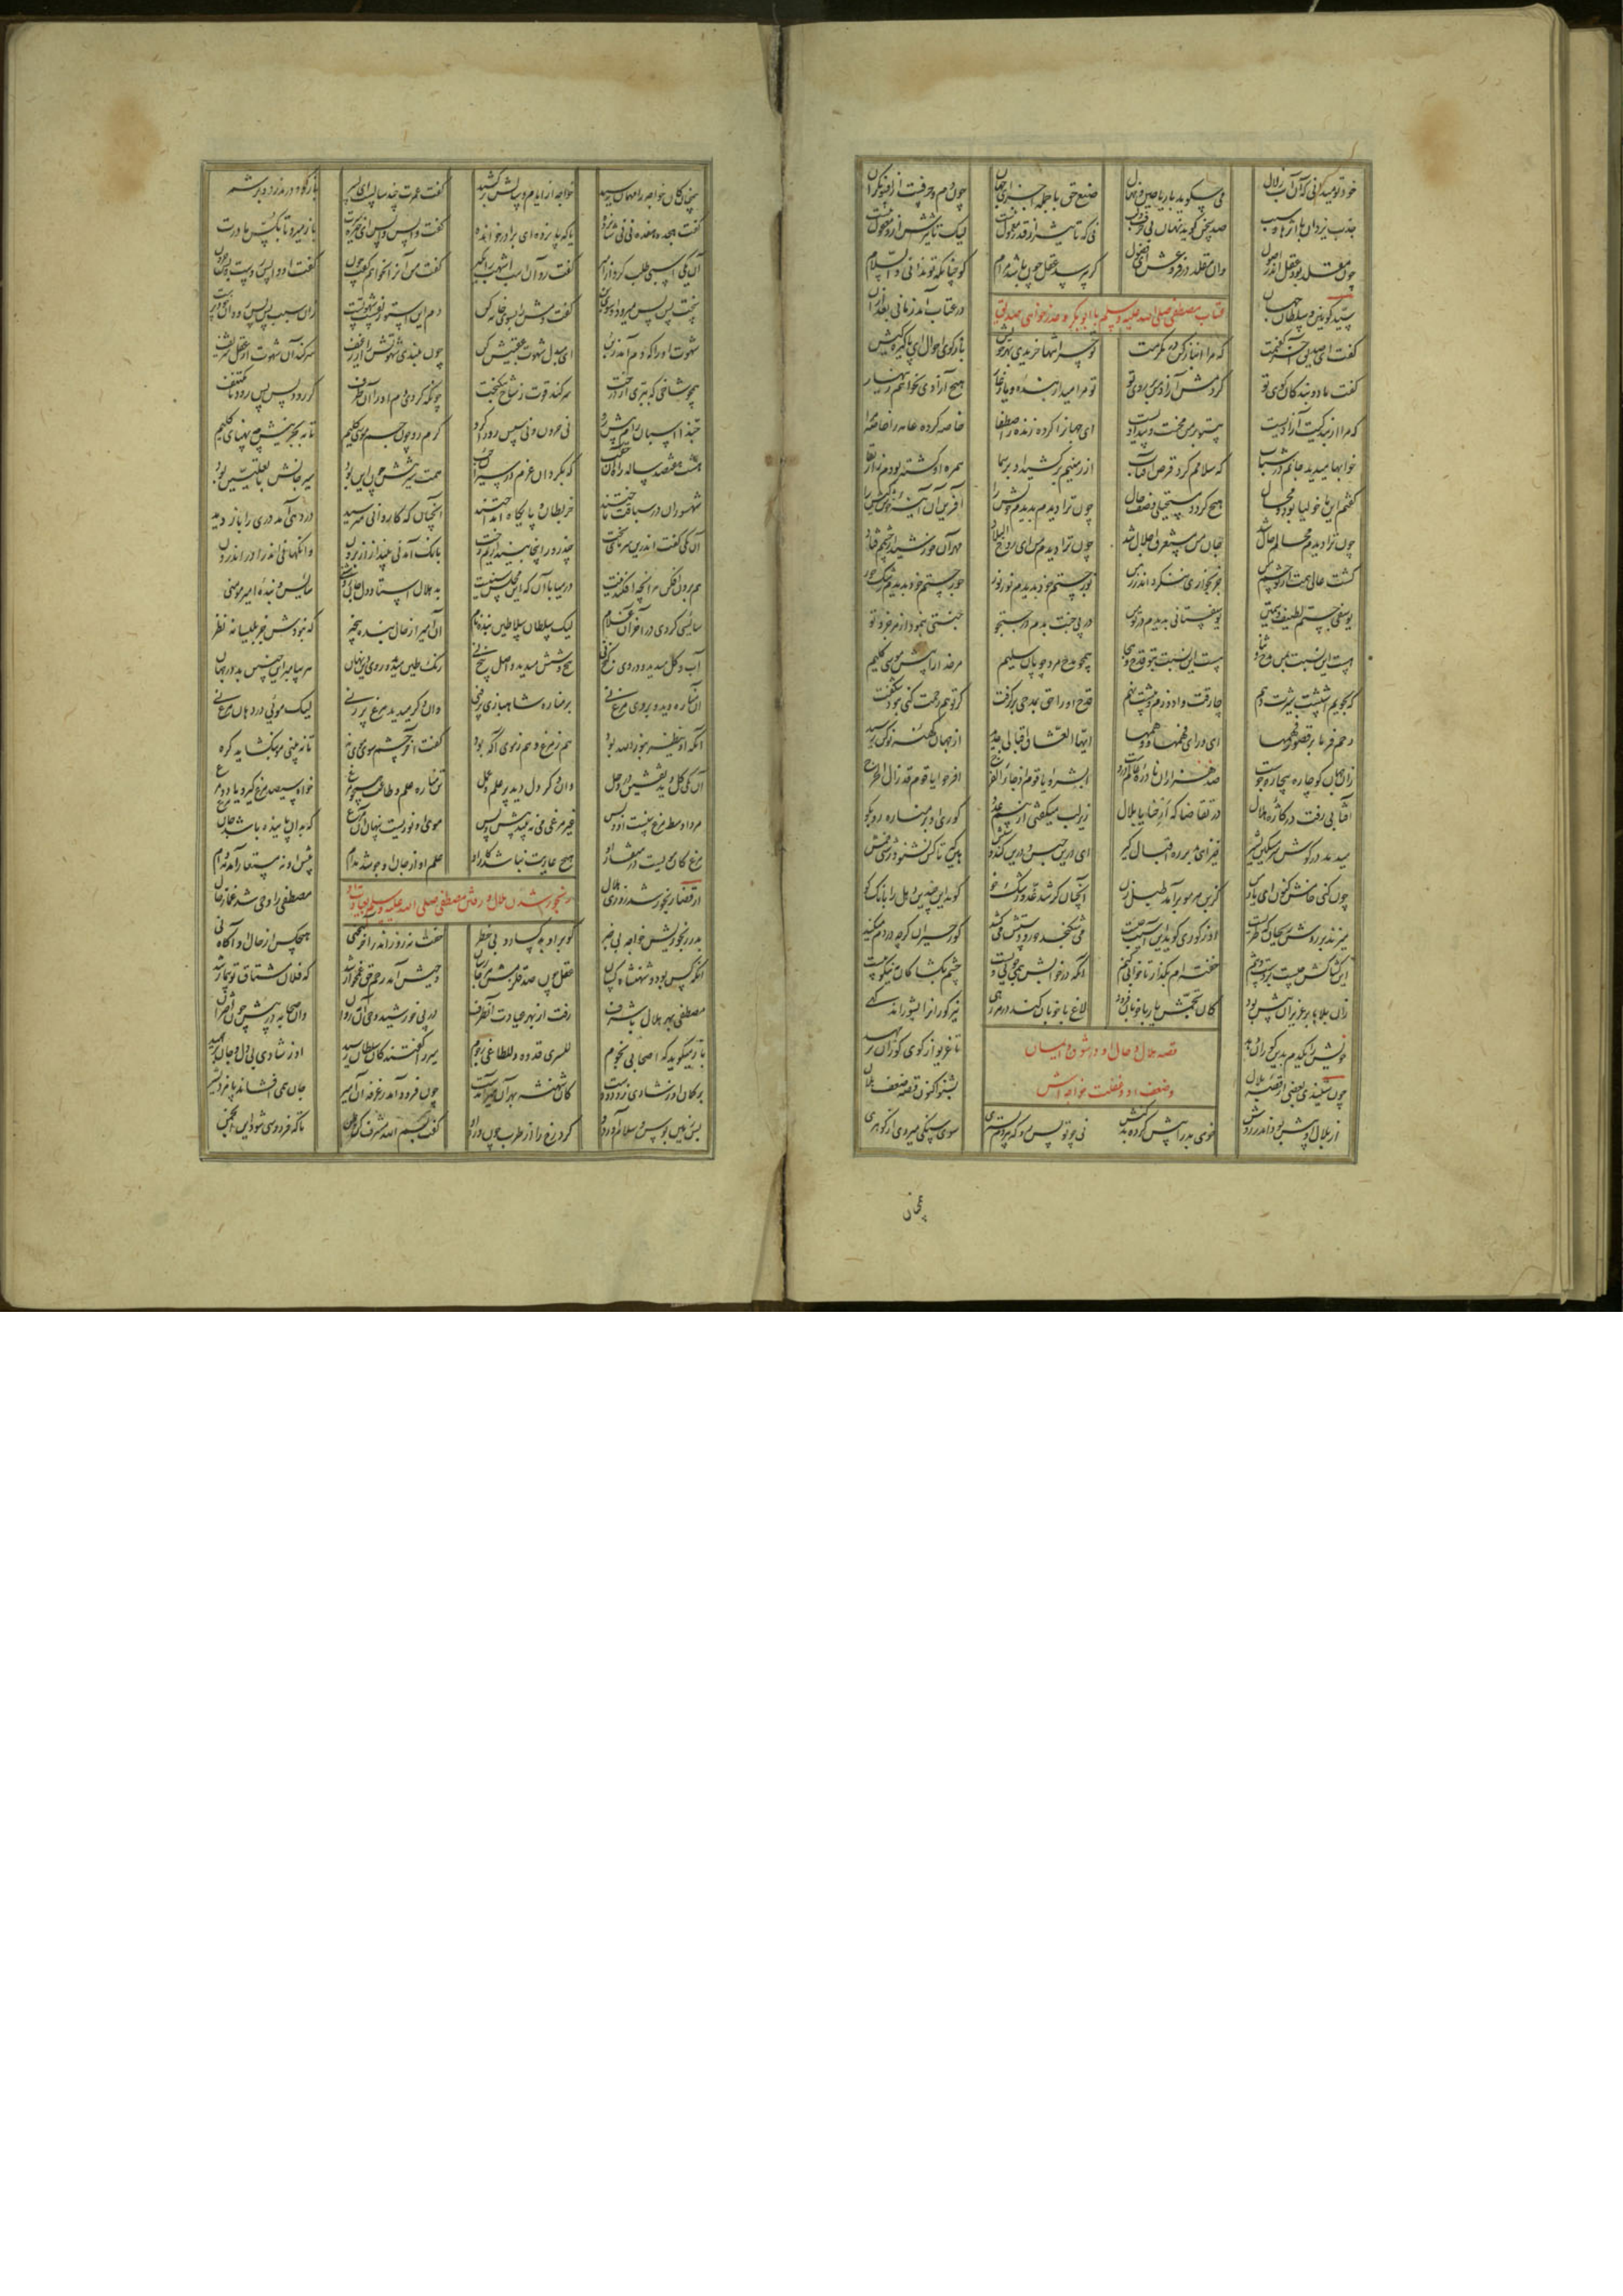 خود تو میدانی که آن آب زلال می چه گوید با ریاحین و نهال صنع حق با جمله اجزای جهان چون دم و حرفست از افسونگران
جذب یزدان با اثرها و سبب صد سخن گوید نهان بی حرف و لب نی که تاثیر از قدر معمول نیست لیک تاثیرش ازو معقول نیست
چون مقلد بود عقل اندر اصول دان مقلد در فروعش ای فضول گر بپرسد عقل چون باشد مرام گو چنانکه تو ندانی والسلام
سید کونین و سلطان جهان در عتاب آمد زمانی بعد از آن
عتاب مصطفی صلی الله علیه و سلم با ابوبکر و عذر خواهی صدیق
گفت ای صدیق آخر گفتمت که مرا انباز کن در مکرمت تو چرا تنها خریدی بهر خویش بازگو احوال ای پاکیزه کیش
گفت ما دو بندگان کوی تو کردمش آزاد من بر روی تو تو مرا میدار بنده و یار غار هیچ آزادی نخواهم زینهار
که مرا از بندگیت آزادیست بی تو بر من محنت و بیدادیست ای جهانرا کرده زنده ز اصطفا خاصه کرده عامه را خاصه مرا
خوابها میدید جانم در شباب که سلامم کرد قرص آفتاب از زمینم بر کشید او بر سما همره او گشته بودم ز ارتقا
گفتم این ماخولیا بود و محال هیچ گردد مستحیلی وصف حال چون ترا دیدم بدیدم خویش را آفرین آن آینه خوش کیش را
چون ترا دیدم محالم حال شد جان من مستغرق اجلال شد چون ترا دیدم من ای روح البلاد مهر آن خورشید از چشمم فتاد
گشت عالی همت از تو چشم من جز بخواری ننگرد اندر زمن نور جستم خود بدیدم نور نور حور جستم خود بدیدم رشک حور
یوسفی جستم لطیف و سیمتن یوسفستانی بدیدم در تو من در پی جنت بدم در جستجو جنتی بنمود از هر جزو تو
هست این نسبت بمن مدح و ثنا هست این نسبت بتو قدح و هجا همچو مدح مرد چوپان سلیم مر خدا را پیش موسی کلیم
که بجویم اشپشت شیرت دهم چارقت دوزم و پیشت نهم قدح او را حق بمدحی برگرفت گر تو هم رحمت کنی نبود شگفت
رحم فرما بر قصور فهمها ای ورای فهمها و وهمها ایها العشاق اقبالی جدید از جهان کهنه نوگر رسید
زان جهان کو چاره بیچاره جوست صد هزاران نادره عالم دروست ابشروا یا قوم اذ جاء الفرج افرحوا یا قوم قد زال الحرج
آفتابی رفت در کازه هلال در تقاضا که ارحنا یا بلال زیر لب میگفتی از بیم عدو کوری او بر مناره رو بگو
میدمد در گوش هر غمگین بشیر خیز ای مدبر ره اقبال گیر ای درین حبس و درین گند و شپش هین که تا کس نشنود رستی خمش
چون کنی خامش کنون ای یار من کز بن هر مو برآمد طبل زن آنچنان کر شد عدو رشک خو گوید این چندین دهل را بانگ کو
میزند بر روش ریحان که طریست او ز کوری گوید این آسیب چیست می شکنجد حور و دستش می کشد کور حیران کز چه دردم میکند
این کشاکش چیست بر دست و تنم خفته ام بگذار تا خوابی کنم آنکه در خوابش همی جویی ویست چشم بگشا کان مه نیکو پیست
زان بلاها بر عزیزان بیش بود کان تجمش یار با خوبان فزود لاغ با خوبان کند در هر رهی نیز کورانرا بشوراند گهی
خویش را یکدم بدین کوران دهد تا غریو از کوی کوران بر جهد
قصه هلال و حال او
و ضعف او و غفلت خواجه اش
چون شنیدی بعضی از قصه بلال بشنو اکنون قصه ضعف هلال
از هلال او پیش بود اندر روش خوی بد را بیش کرده بد کشش نی چو تو پس رو که هر دم پستری سوی سنگی میروی از گوهری
همچنان
همچو کان خواجه را مهمان رسید خواجه از ایام و سالش بر رسید گفت عمرت چند سالست ای پسر بازگو و در مدزد و برشمر
گفت هجده هفده نی نی شانزده یا که پانزده ای برادر خوانده گفت واپس واپس ای خیره سرت باز میرو تا بکس مادرت
آن یکی اسبی طلب کرد از امیر گفت رو آن اسب اشهب را بگیر گفت من آنرا نخواهم گفت چون گفت او واپس رو است و بس حرون
سخت پس پس میرود او سوی بن گفت دمش را بسوی خانه کن دم این استور نفست شهوتست زان سبب پس پس رود ای خودپرست
شهوت او را که دم آمد ز بن ای مبدل شهوت عقبیش کن چون ببندی شهوتش را از رغیف سر کند آن شهوت از عقل شریف
همچو شاخی که ببری از درخت سر کند قوت ز شاخ نیکبخت چونکه کردی دم او را آن طرف گر رود پس پس رود تا مکتنف
حبذا اسپان رام پیش رو نی حرون و نی سپس رو را گرو گرم رو چون جسم موسی کلیم تا به بحرینش چو پهنای گلیم
هست هفصد ساله راه آن حقب که بکرد آن عزم در سیران حب همت سیر تنش چون این بود سیر جانش تا بعلیین بود
شهسواران در سباقت تاختند خربطان در پایگاه انداختند آنچنان که کاروانی میرسید در دهی آمد دری را باز دید
آن یکی گفت اندرین سرمای سخت چند روز اینجا بیندازیم رخت بانگ آمد نی بینداز از برون وانگهانی اندرا در اندرون
هم برون افکن هر آنچه افکندنیست در میا با آن که این مجلس سنیست بد هلال استاد دل جان روشنی سایس و بنده امیر مومنی
سایسی کردی در آخر آن غلام لیک سلطان سلاطین بنده نام آن امیر از حال بنده بیخبر که نبودش جز بلیسانه نظر
آب و گل میدید و در وی گنج نی پنج و شش میدید و اصل پنج نی رنگ طین پیدا و نور دین نهان هر پیمبر این چنین بد در جهان
آن مناره دید و بر وی مرغ نی بر مناره شاهبازی پر فنی وان دگر میدید مرغ پر زنی لیک موئی در دهان مرغ نی
آنکه او ینظر بنور الله بود هم ز مرغ و هم ز موی آگه بود گفت آخر چشم سوی موی نه تا نبینی مو بنگشاید گره
آن یکی گل دید نقشین در وحل وان دگر دل دید پر علم و عمل تن مناره علم و طاعت همچو مرغ خواه سیصد مرغ گیر و یا دو مرغ
مرد اوسط مرغ بینست او و بس غیر مرغی می نبیند پیش و پس موی آن نوریست پنهان آن مرغ که بدان پاینده باشد جان مرغ
مرغ کان مویست در منقار او هیچ عاریت نباشد کار او علم او از جان او جوشد مدام پیش او نه مستعار آمد نه وام
رنجور شدن هلال و رفتن مصطفی صلی الله علیه وسلم بعیادت او
از قضا رنجور شد روزی هلال مصطفی را وحی شد غماز حال
بد ز رنجوریش خواجه بی خبر کو بر او بد کساد و بی خطر خفته نه روز اندر آخر محسنی هیچکس از حال او آگاه نی
آنکه کس بود و شهنشاه کسان عقل چون صد قلزمش هر جا رسان وحیش آمد رحم حق غمخوار شد که فلان مشتاق تو بیمار شد
مصطفی بهر هلال با شرف رفت از بهر عیادت آن طرف در پی خورشید وحی آن مه دوان وان صحابه در پیش چون اختران
ماه میگوید که اصحابی نجوم للسری قدوه و للطاغی رجوم میر را گفتند کان سلطان رسید او ز شادی بی دل و جان برجهید
بر گمان آن ز شادی زد دو دست کان شهنشه بهر آن میر آمدست چون فرود آمد ز غرفه آن امیر جان همی افشاند پامزد بشیر
پس زمین بوس و سلام آورد او کرد رخ را از طرب چون ورد او گفت بسم الله مشرف کن وطن تا که فردوسی شود این انجمن